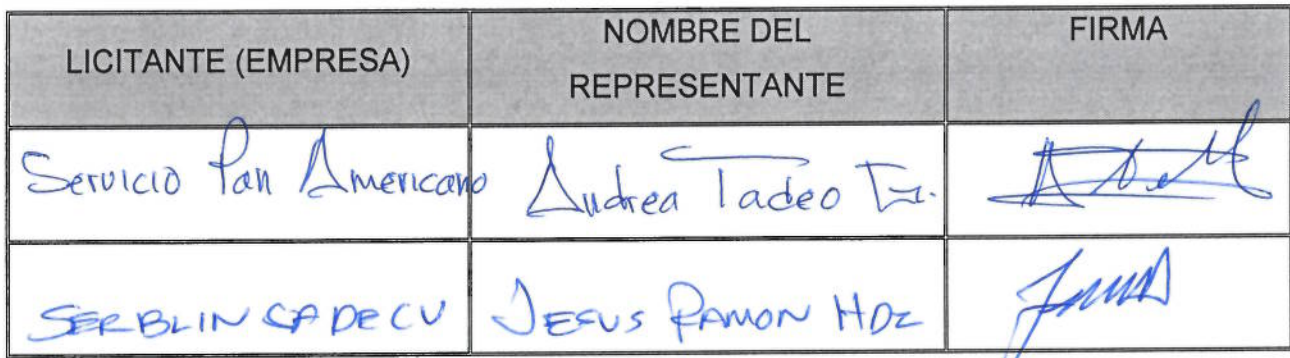 LICITANTE (EMPRESA)
NOMBRE DEL
REPRESENTANTE
FIRMA
Servicio Pan Americano
Andrea Tadeo
SERBLIN SA DE CV
JESUS RAMON HDZ